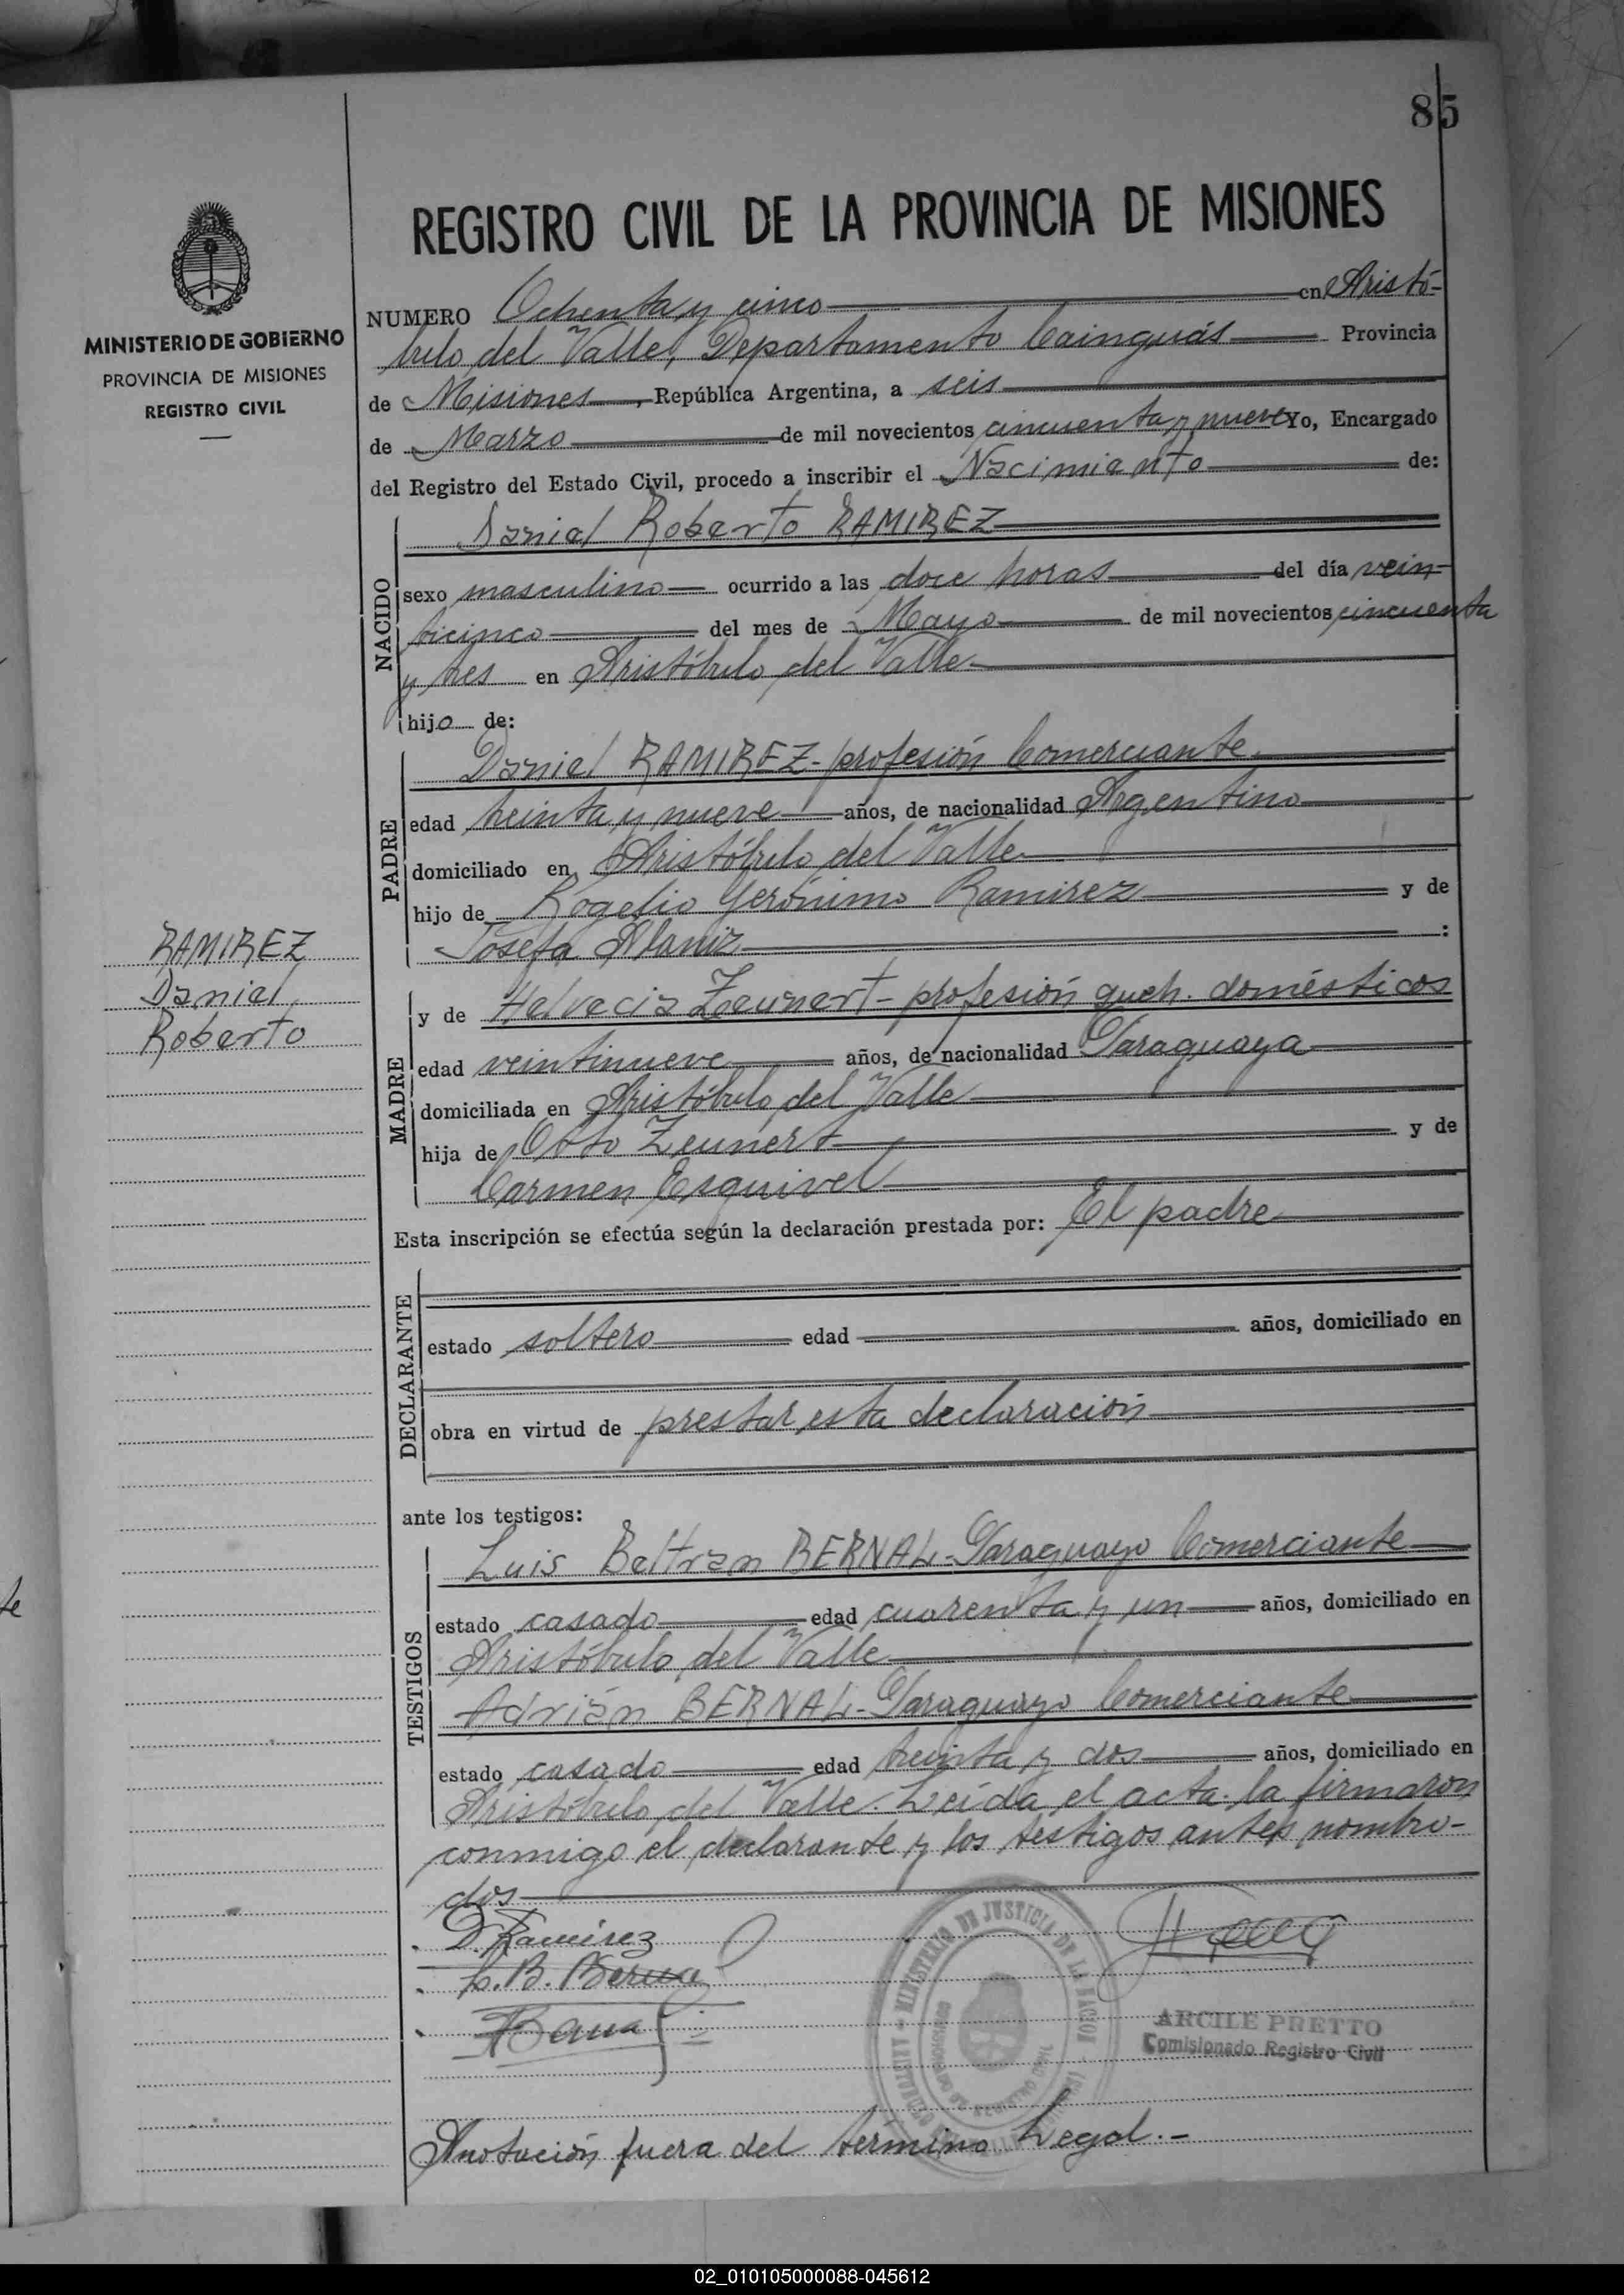 85
REGISTRO CIVIL DE LA PROVINCIA DE MISIONES
MINISTERIO DE GOBIERNO
PROVINCIA DE MISIONES
REGISTRO CIVIL
NUMERO Ochenta y cinco en Aristó-
bulo del Valle, Departamento Cainguás Provincia
de Misiones, República Argentina, a seis
de Marzo de mil novecientos cincuenta y nueve Yo, Encargado
del Registro del Estado Civil, procedo a inscribir el Nacimiento de:
NACIDO
Daniel Roberto RAMIREZ
sexo masculino ocurrido a las doce horas del día vein-
ticinco del mes de Mayo de mil novecientos cincuenta
y tres en Aristóbulo del Valle
hijo de:
PADRE
Daniel RAMIREZ - profesión Comerciante
edad treinta y nueve años, de nacionalidad Argentino
domiciliado en Aristóbulo del Valle
hijo de Rogelio Gerónimo Ramirez y de
Josefa Alaniz :
RAMIREZ
Daniel
Roberto
MADRE
y de Helvecia Zeunert - profesión queh. domésticos
edad veintinueve años, de nacionalidad Paraguaya
domiciliada en Aristóbulo del Valle
hija de Otto Zeunert y de
Carmen Esquivel
Esta inscripción se efectúa según la declaración prestada por: El padre
DECLARANTE
estado soltero edad años, domiciliado en
obra en virtud de prestar esta declaración
ante los testigos:
TESTIGOS
Luis Beltran BERNAL - Paraguayo Comerciante
estado casado edad cuarenta y un años, domiciliado en
Aristóbulo del Valle
Adrián BERNAL - Paraguayo Comerciante
estado casado edad treinta y dos años, domiciliado en
Aristóbulo del Valle. Leída el acta la firmaron
conmigo el declarante y los testigos antes nombra-
dos
D. Ramirez
L. B. Bernal
MINISTERIO DE JUSTICIA DE LA NACION
ARCILE PRETTO
Comisionado Registro Civil
Anotación fuera del término Legal.-
02_010105000088-045612